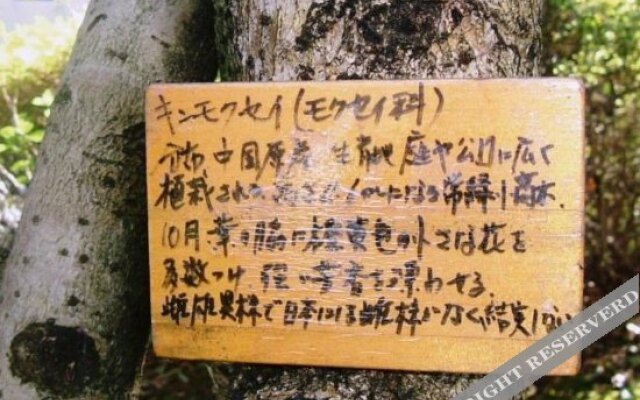 キンモクセイ(モクセイ科)
分布 中国原産 生育地 庭や公園に広く
植栽され 高さ になる常緑小高木.
10月、葉の脇に橙黄色の小さな花を
多数つけ、強い芳香を漂わせる.
雌雄異株で日本には雌株がなく、結実しない
RIGHT RESERVERD